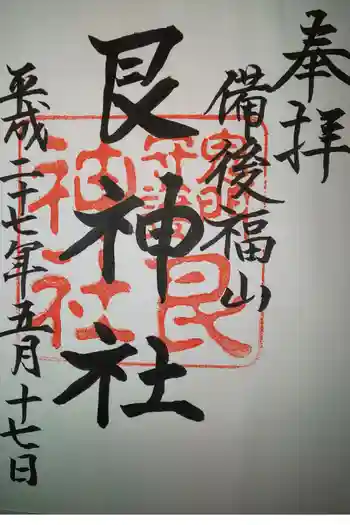 奉拝
備後福山
艮神社
平成二十七年五月十七日